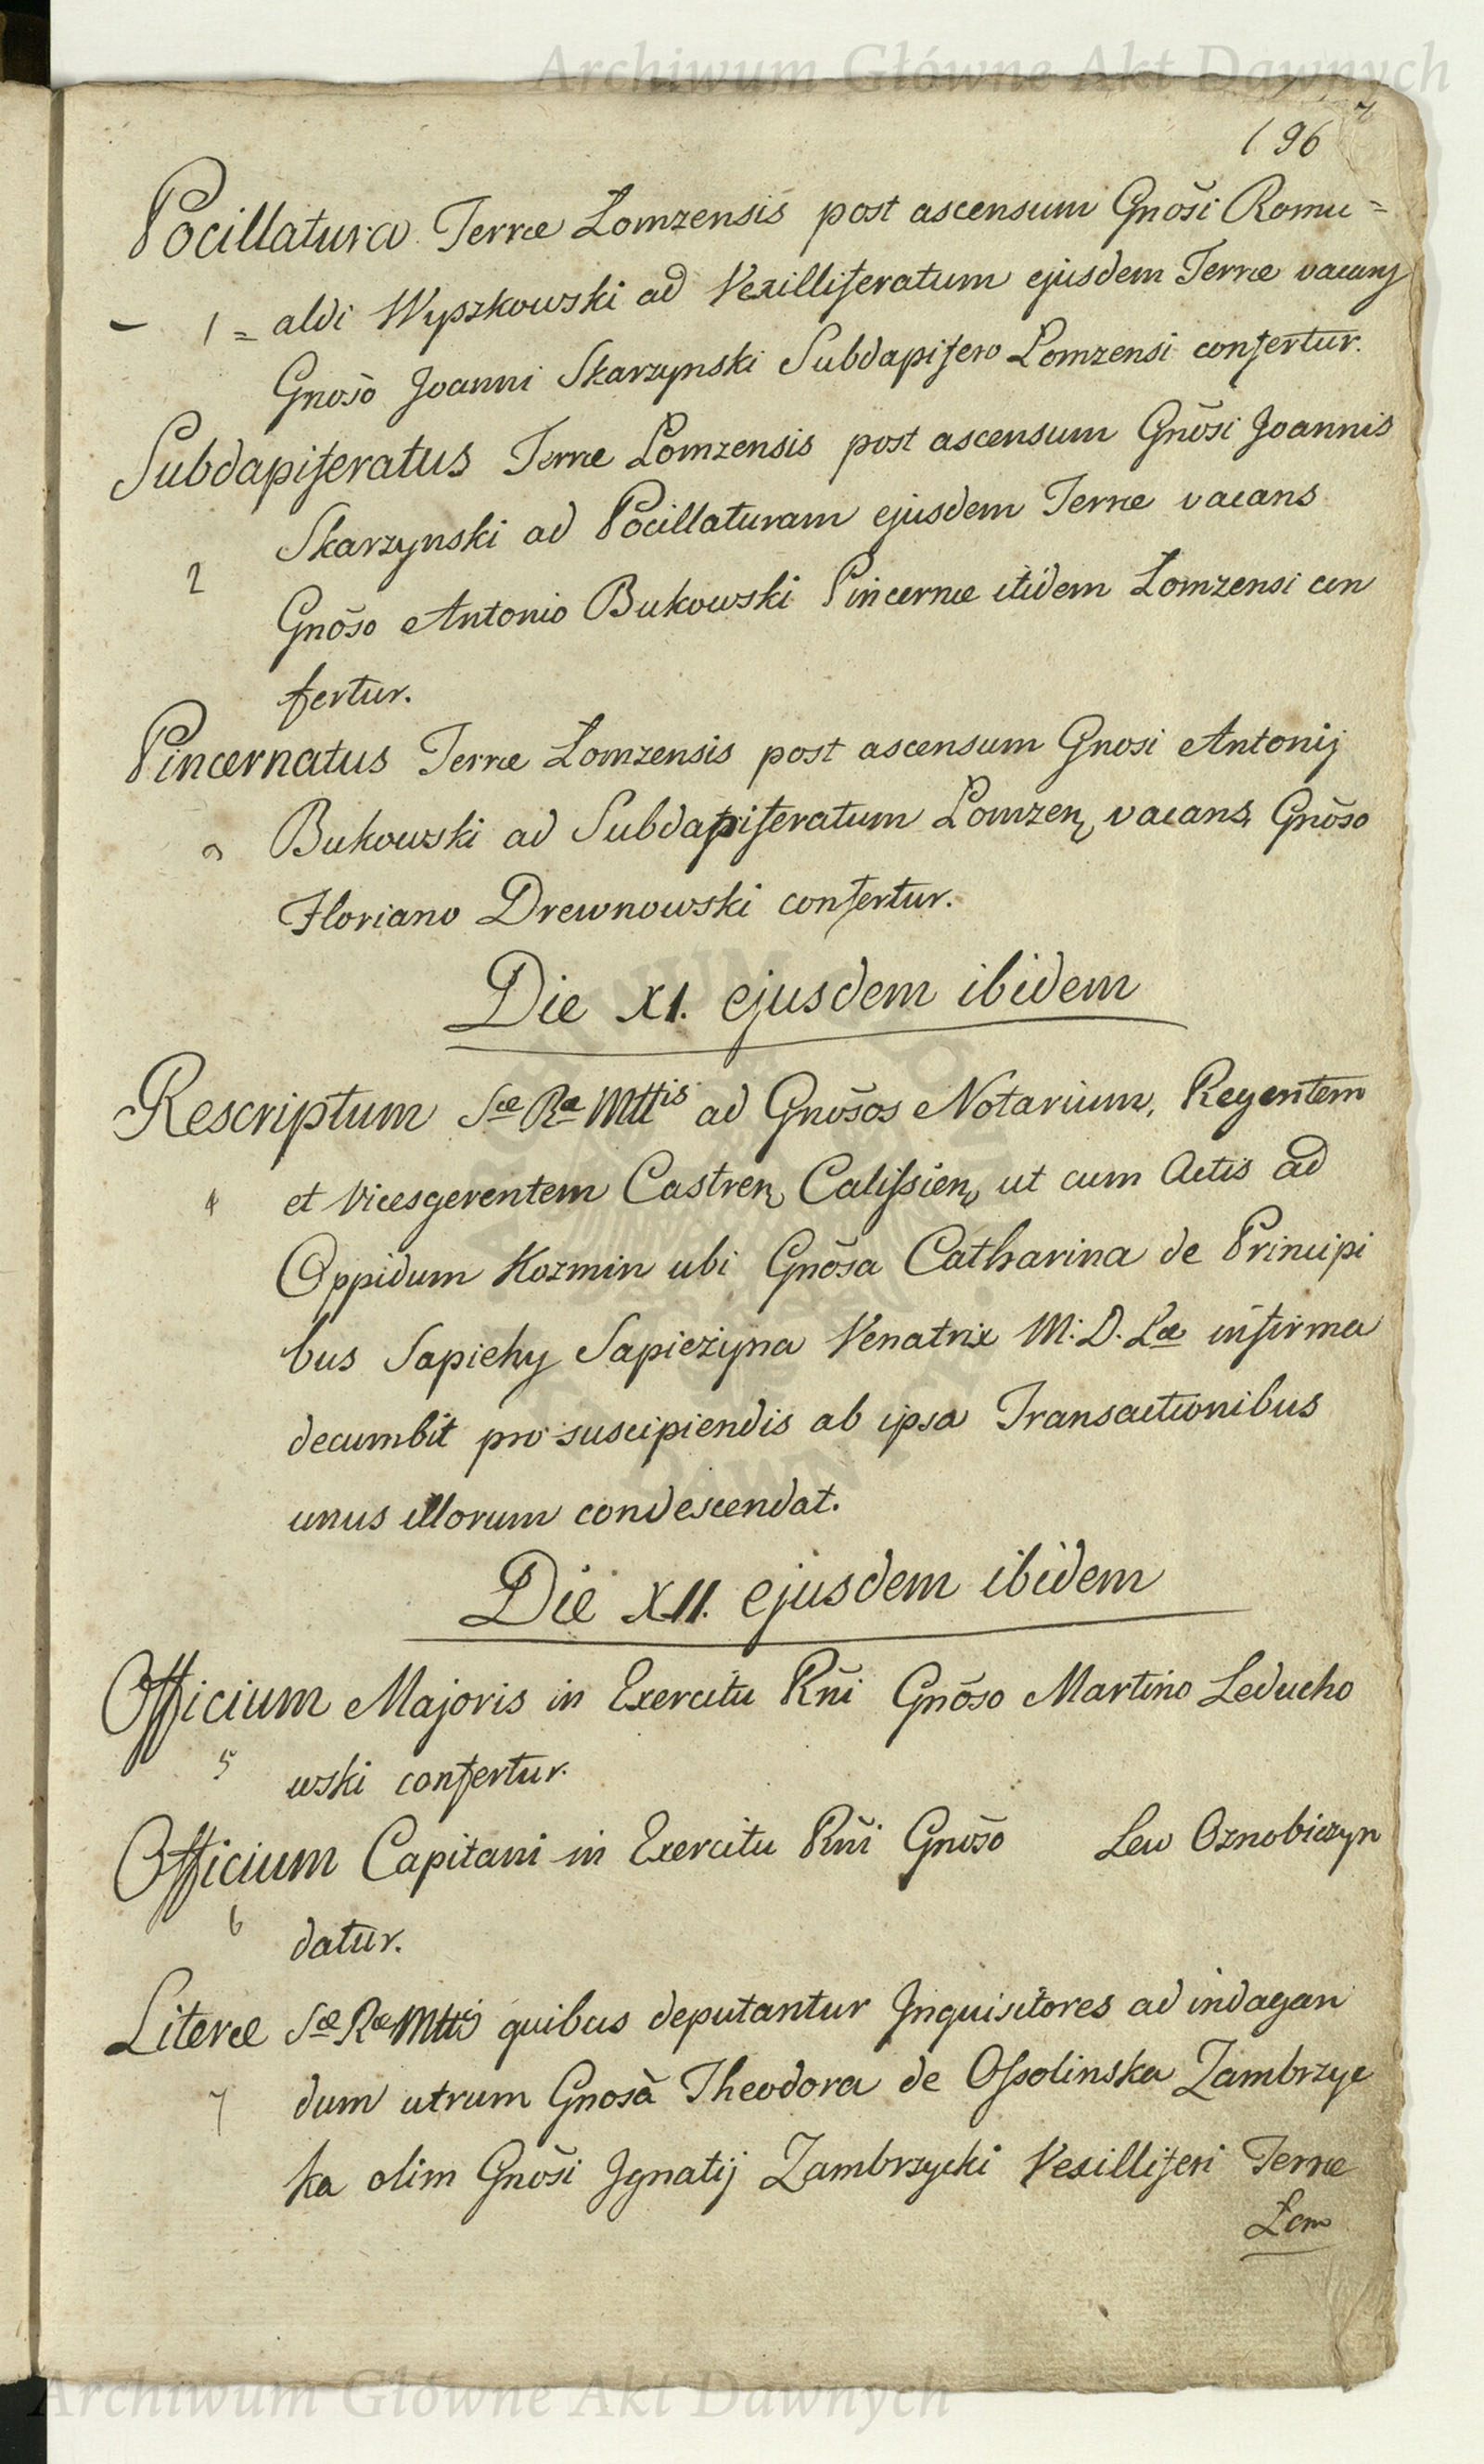 Archiwum Główne Akt Dawnych
7
196
Pocillatura Terræ Lomzensis post ascensum Gnõsi Romu=
1= aldi Wyszkowski ad Vexilliferatum ejusdem Terræ vacans
Gnosõ Joanni Skarzynski Subdapifero Lomzensi confertur.
Subdapiferatus Terræ Lomzensis post ascensum Gnõsi Joannis
Skarzynski ad Pocillaturam ejusdem Terræ vacans
2
Gnõso Antonio Bukowski Pincernæ itidem Lomzensi con
fertur.
Pincernatus Terræ Lomzensis post ascensum Gnosi Antonij
3 Bukowski ad Subdapiferatum Lomzen, vacans, Gnõso
Floriano Drewnowski confertur.
Die XI. ejusdem ibidem
Rescriptum Sæ Ræ Mttis ad Gnosõs Notarium, Regentem
4 et Vicesgerentem Castren, Calissien, ut cum Actis ad
Oppidum Kozmin ubi Gnõsa Catharina de Principi
bus Sapiehy Sapieżyna Venatrix M: D. Læ infirma
decumbit pro suscipiendis ab ipsa Transactionibus
unus illorum condescendat.
Die XII. ejusdem ibidem
Officium Majoris in Exercitu Rñi Gnõso Martino Leducho
5 wski confertur.
Officium Capitani in Exercitu Rñi Gnõso Lew Oznobiczyn
6 datur.
Literæ Sæ Ræ Mttis quibus deputantur Inquisitores ad indagan
7 dum utrum Gnosã Theodora de Ossolinska Zambrzyc
ka olim Gnõsi Ignatij Zambrzycki Vexilliferi Terræ
Lom
Archiwum Główne Akt Dawnych